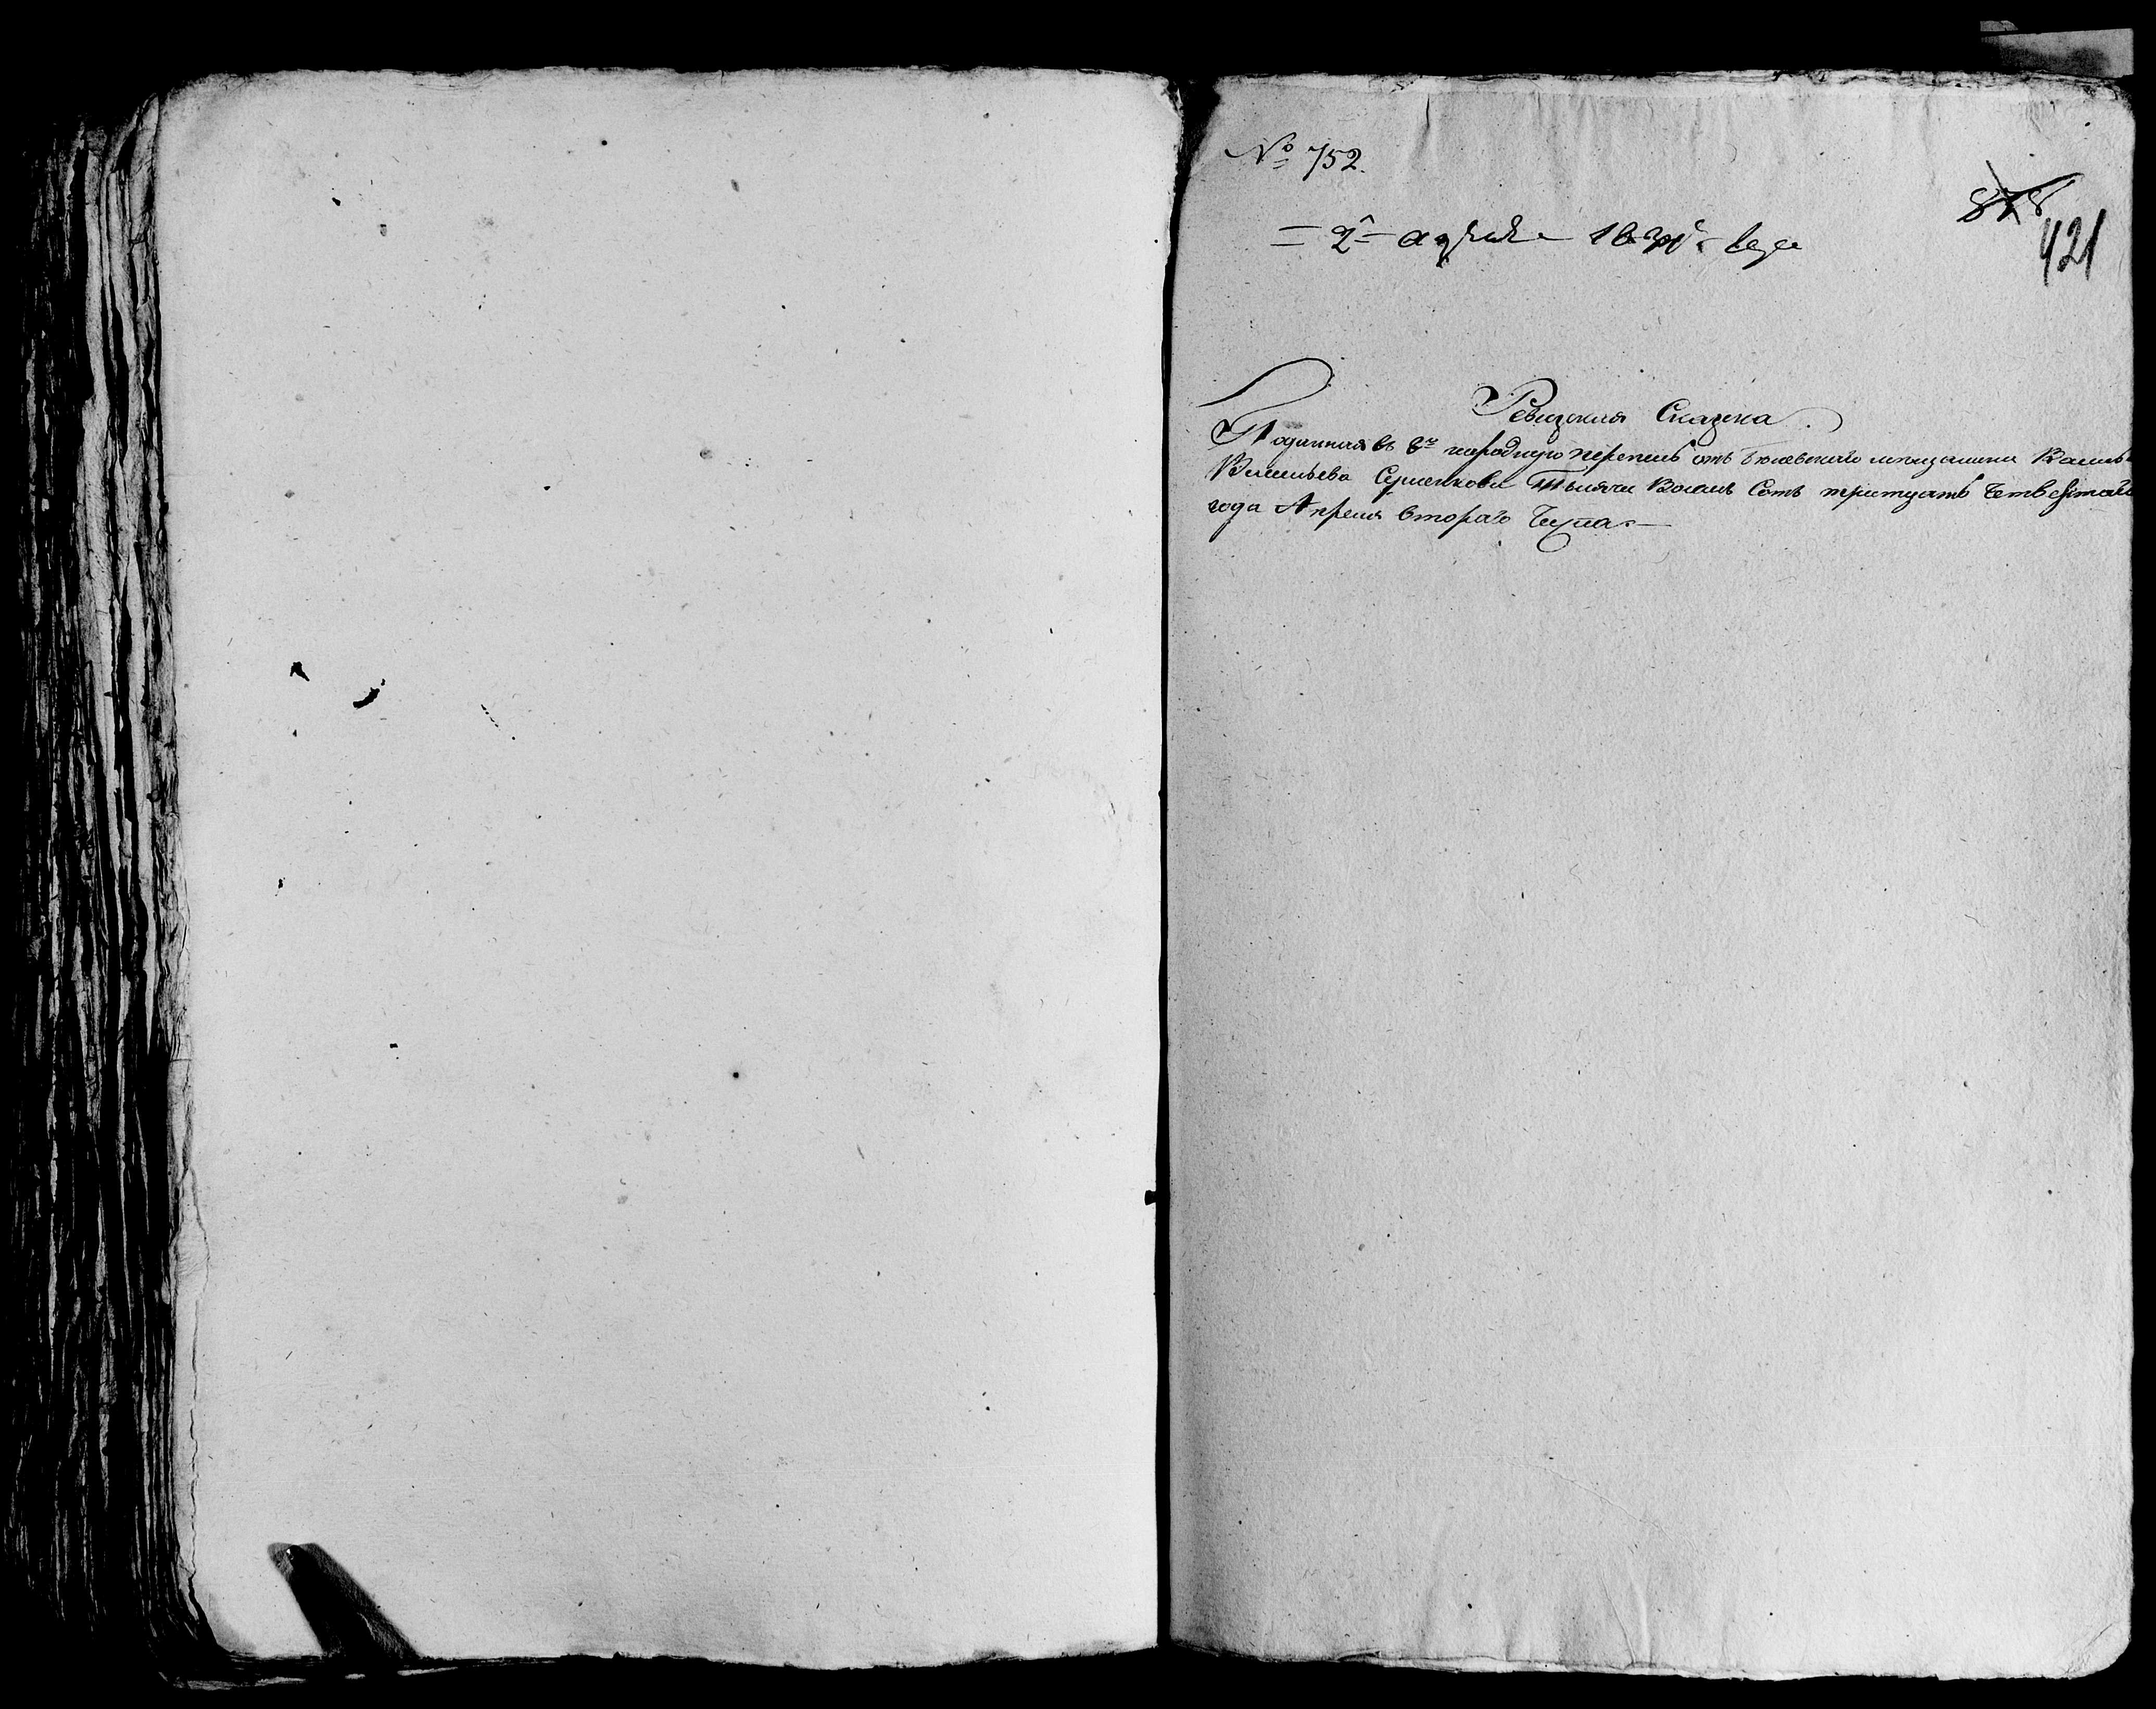 № 752.
878
421
= 2 = апреля 1834 года
Ревизская Сказка.
Поданная въ 8ю народную перепись отъ мещанина Василья
Васильева Тысяча Восемь Сотъ тритцать Четвертаго
года Апреля втораго Числа.